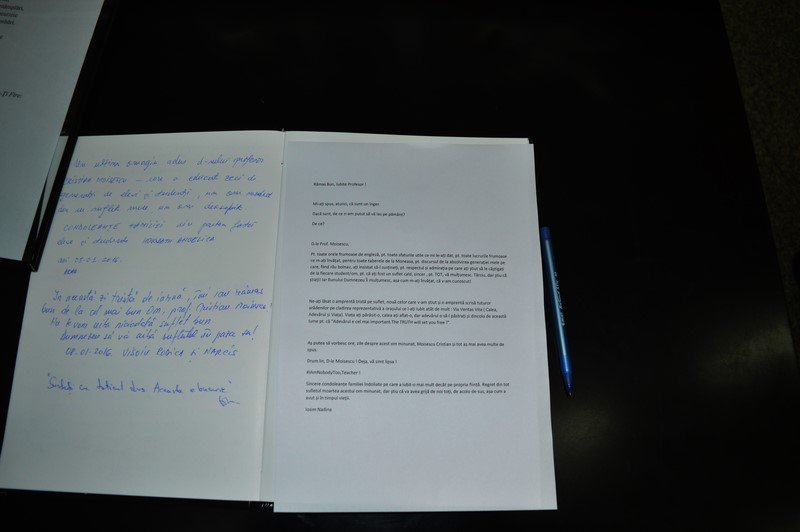 Un ultim omagiu adus d-nului profesor
CRISTIAN MOISESCU – care a educat zeci de
generații de elevi și studenți, un om modest
dar cu suflet mare, un om deosebit.
CONDOLEANȚE FAMILIEI din partea fostei
eleve și studente ANGELICA
08.01.2016.
ARAD
În această zi tristă de iarnă, îmi iau rămas
bun de la cel mai bun om, prof. Cristian Moisescu!
Nu te vom uita niciodată suflet bun
Dumnezeu să va aibă sufletul în paza sa!
08.01.2016 VISOIU RODICA și NARCIS
Rămas Bun, Iubite Profesor !
Mi-ați spus, atunci, că sunt un înger.
Dacă sunt, de ce n-am putut să vă ies pe pământ?
De ce?
D-le Prof. Moisescu,
Pt. toate orele frumoase de engleză, pt. toate sfaturile utile ce mi le-ați dat, pt. toate lucrurile frumoase
ce m-ați învățat, pentru toate taberele de la Moneasa, pt. discursul de la absolvirea generației mele pe
care, fiind rău bolnav, ați insistat să-l susțineți, pt. respectul și admirația pe care ați știut să le câștigați
de la fiecare student/om, pt. că ați fost un suflet cald, sincer , pt. TOT, vă mulțumesc. Târziu, dar știu că
pieții iar Bunului Dumnezeu îi mulțumesc, așa cum m-ați învățat, că v-am cunoscut!
Ne-ați lăsat o amprentă tristă pe suflet, nouă celor care v-am știut și o amprentă scrisă tuturor
arădenilor pe clădirea reprezentativă a orașului ce l-ați iubit atât de mult : Via Veritas Vita ( Calea,
Adevărul și Viața). Viața ați părăsit-o, calea ați aflat-o, dar adevărul o să-l păstrați și dincolo de această
lume pt. că "Adevărul e cel mai important.The TRUTH will set you free !"
Aș putea să vorbesc ore, zile despre acest om minunat, Moisescu Cristian și tot aș mai avea multe de
spus.
Drum lin, D-le Moisescu ! Deja, vă simt lipsa !
#IAmNobodyToo,Teacher !
Sincere condoleanțe familiei îndoliate pe care a iubit-o mai mult decât pe propria ființă. Regret din tot
sufletul moartea acestui om minunat, dar știu că va avea grijă de noi toți, de acolo de sus, așa cum a
avut și în timpul vieții.
Iosim Nadina